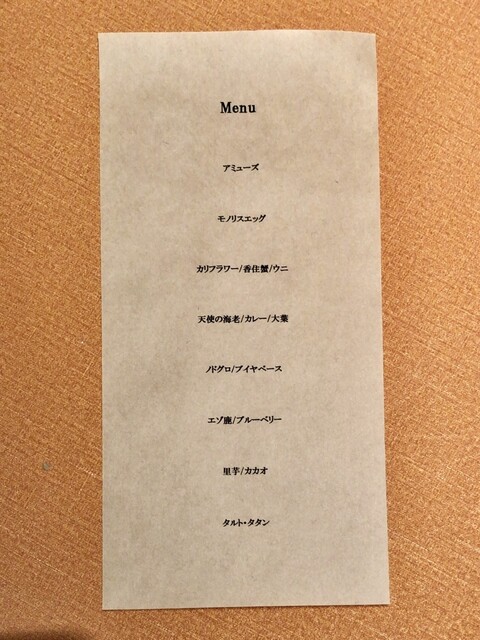 Menu
アミューズ
モノリスエッグ
カリフラワー/香住蟹/ウニ
天使の海老/カレー/大葉
ノドグロ/ブイヤベース
エゾ鹿/ブルーベリー
里芋/カカオ
タルト・タタン